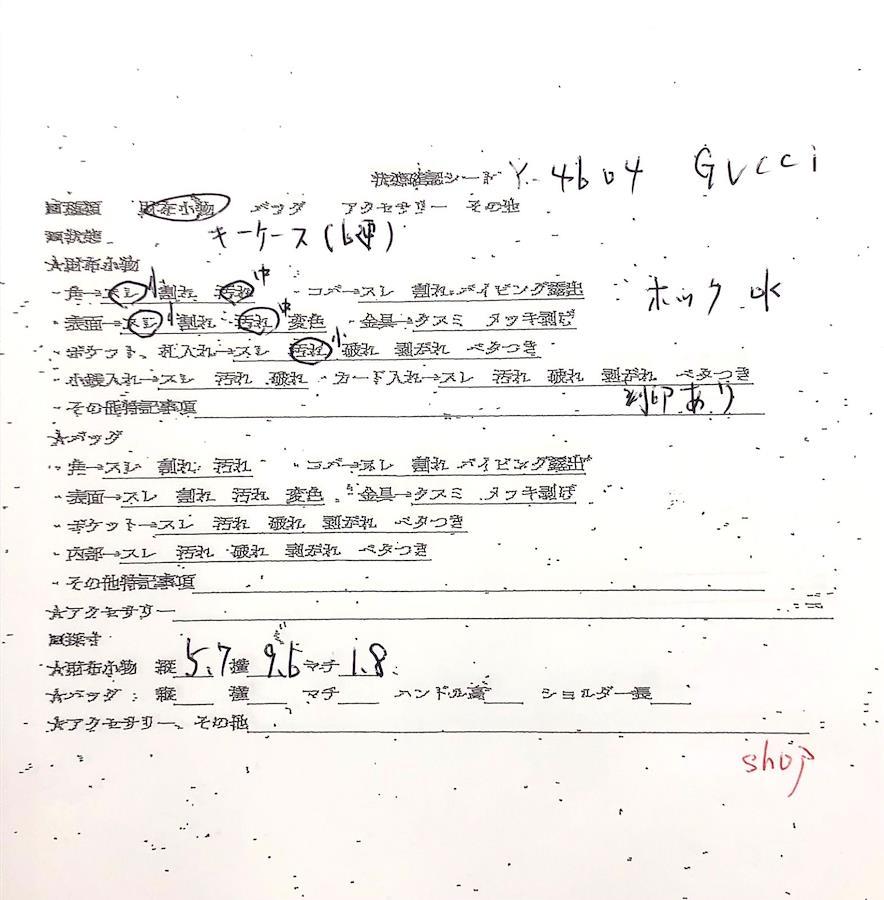 状態確認シート Y-4604 GUCCI
■種類 財布小物 バッグ アクセサリー その他
■状態 キーケース(6連)
★財布小物
・角→スレ 小 割れ 汚れ 中 ・コバ→スレ 割れ パイピング露出 ホック OK
・表面→スレ 小 割れ 汚れ 中 変色 ・金具→クスミ メッキ剥げ
・ポケット、札入れ→スレ 汚れ 小 破れ 剥がれ ベタつき
・小銭入れ→スレ 汚れ 破れ ・カード入れ→スレ 汚れ 破れ 剥がれ ベタつき
・その他特記事項 刻印あり
★バッグ
・角→スレ 割れ 汚れ ・コバ→スレ 割れ パイピング露出
・表面→スレ 割れ 汚れ 変色 ・金具→クスミ メッキ剥げ
・ポケット→スレ 汚れ 破れ 剥がれ ベタつき
・内部→スレ 汚れ 破れ 剥がれ ベタつき
・その他特記事項
★アクセサリー
■採寸
★財布小物 縦 5.7 横 9.5 マチ 1.8
★バッグ: 縦 横 マチ ハンドル高 ショルダー長
★アクセサリー、その他
shop